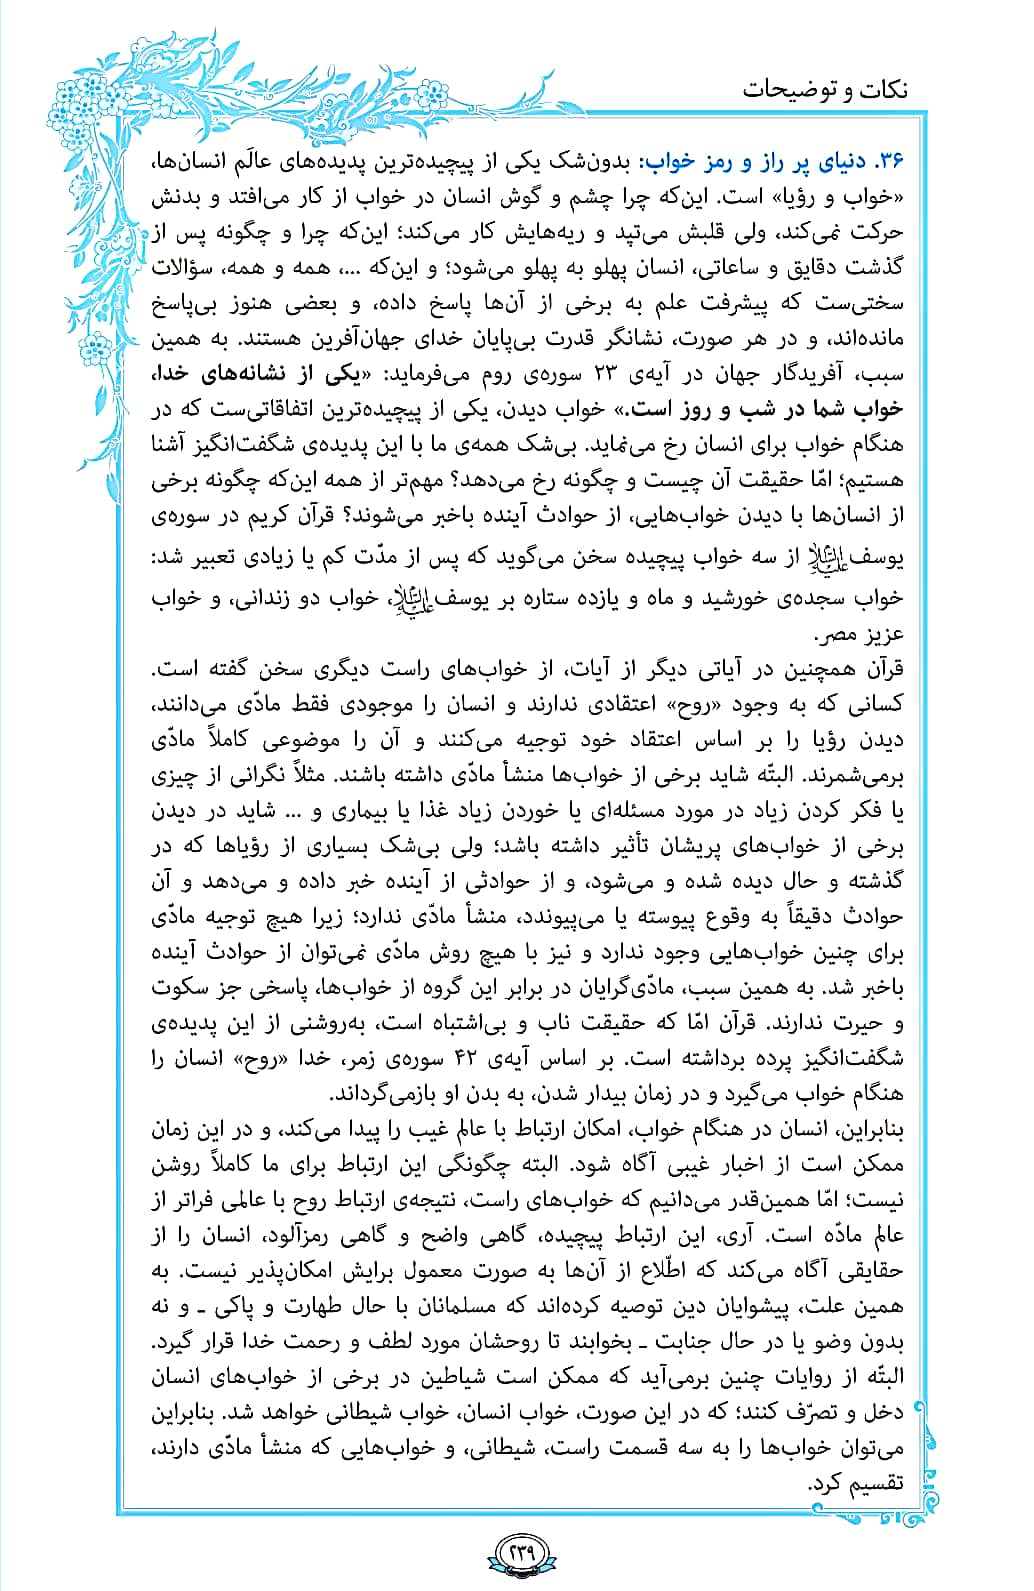 نکات و توضیحات
۳۶. دنیای پر راز و رمز خواب: بدون‌شک یکی از پیچیده‌ترین پدیده‌های عالَم انسان‌ها،
«خواب و رؤیا» است. این‌که چرا چشم و گوش انسان در خواب از کار می‌افتد و بدنش
حرکت نمی‌کند، ولی قلبش می‌تپد و ریه‌هایش کار می‌کند؛ این‌که چرا و چگونه پس از
گذشت دقایق و ساعاتی، انسان پهلو به پهلو می‌شود؛ و این‌که ...، همه و همه، سؤالات
سختی‌ست که پیشرفت علم به برخی از آن‌ها پاسخ داده، و بعضی هنوز بی‌پاسخ
مانده‌اند، و در هر صورت، نشانگر قدرت بی‌پایان خدای جهان‌آفرین هستند. به همین
سبب، آفریدگار جهان در آیه‌ی ۲۳ سوره‌ی روم می‌فرماید: «یکی از نشانه‌های خدا،
خواب شما در شب و روز است.» خواب دیدن، یکی از پیچیده‌ترین اتفاقاتی‌ست که در
هنگام خواب برای انسان رخ می‌نماید. بی‌شک همه‌ی ما با این پدیده‌ی شگفت‌انگیز آشنا
هستیم؛ امّا حقیقت آن چیست و چگونه رخ می‌دهد؟ مهم‌تر از همه این‌که چگونه برخی
از انسان‌ها با دیدن خواب‌هایی، از حوادث آینده باخبر می‌شوند؟ قرآن کریم در سوره‌ی
یوسف علیه‌السلام از سه خواب پیچیده سخن می‌گوید که پس از مدّت کم یا زیادی تعبیر شد:
خواب سجده‌ی خورشید و ماه و یازده ستاره بر یوسف علیه‌السلام، خواب دو زندانی، و خواب
عزیز مصر.
قرآن همچنین در آیاتی دیگر از آیات، از خواب‌های راست دیگری سخن گفته است.
کسانی که به وجود «روح» اعتقادی ندارند و انسان را موجودی فقط مادّی می‌دانند،
دیدن رؤیا را بر اساس اعتقاد خود توجیه می‌کنند و آن را موضوعی کاملاً مادّی
برمی‌شمرند. البتّه شاید برخی از خواب‌ها منشأ مادّی داشته باشند. مثلاً نگرانی از چیزی
یا فکر کردن زیاد در مورد مسئله‌ای یا خوردن زیاد غذا یا بیماری و ... شاید در دیدن
برخی از خواب‌های پریشان تأثیر داشته باشد؛ ولی بی‌شک بسیاری از رؤیاها که در
گذشته و حال دیده شده و می‌شود، و از حوادثی از آینده خبر داده و می‌دهد و آن
حوادث دقیقاً به وقوع پیوسته یا می‌پیوندد، منشأ مادّی ندارد؛ زیرا هیچ توجیه مادّی
برای چنین خواب‌هایی وجود ندارد و نیز با هیچ روش مادّی نمی‌توان از حوادث آینده
باخبر شد. به همین سبب، مادّی‌گرایان در برابر این گروه از خواب‌ها، پاسخی جز سکوت
و حیرت ندارند. قرآن امّا که حقیقت ناب و بی‌اشتباه است، به‌روشنی از این پدیده‌ی
شگفت‌انگیز پرده برداشته است. بر اساس آیه‌ی ۴۲ سوره‌ی زمر، خدا «روح» انسان را
هنگام خواب می‌گیرد و در زمان بیدار شدن، به بدن او بازمی‌گرداند.
بنابراین، انسان در هنگام خواب، امکان ارتباط با عالم غیب را پیدا می‌کند، و در این زمان
ممکن است از اخبار غیبی آگاه شود. البته چگونگی این ارتباط برای ما کاملاً روشن
نیست؛ امّا همین‌قدر می‌دانیم که خواب‌های راست، نتیجه‌ی ارتباط روح با عالمی فراتر از
عالم مادّه است. آری، این ارتباط پیچیده، گاهی واضح و گاهی رمزآلود، انسان را از
حقایقی آگاه می‌کند که اطّلاع از آن‌ها به صورت معمول برایش امکان‌پذیر نیست. به
همین علت، پیشوایان دین توصیه کرده‌اند که مسلمانان با حال طهارت و پاکی ـ و نه
بدون وضو یا در حال جنابت ـ بخوابند تا روحشان مورد لطف و رحمت خدا قرار گیرد.
البتّه از روایات چنین برمی‌آید که ممکن است شیاطین در برخی از خواب‌های انسان
دخل و تصرّف کنند؛ که در این صورت، خواب انسان، خواب شیطانی خواهد شد. بنابراین
می‌توان خواب‌ها را به سه قسمت راست، شیطانی، و خواب‌هایی که منشأ مادّی دارند،
تقسیم کرد.
۲۳۹